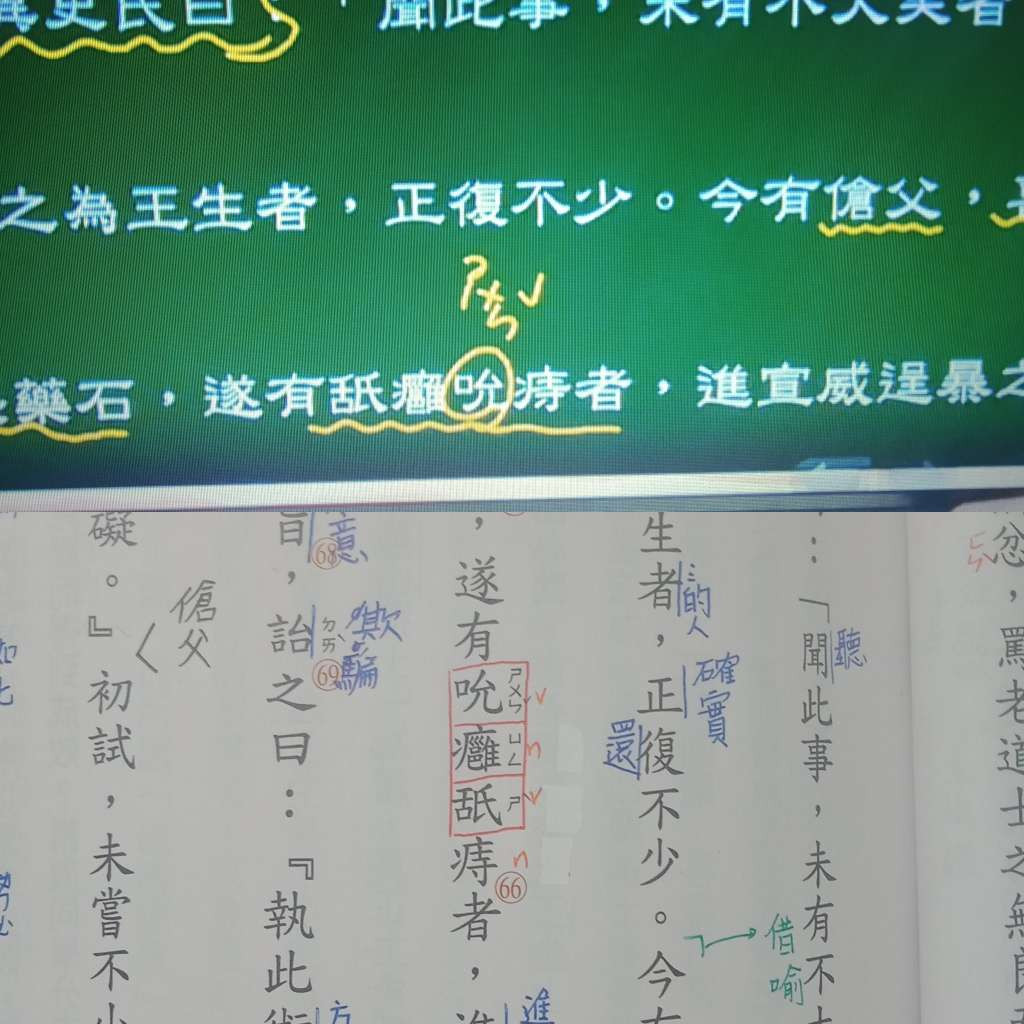 異史氏曰：「聞此事，未有不大笑者
之為王生者，正復不少。今有傖父，
ㄕㄨㄣˇ
藥石，遂有舐癰吮痔者，進宣威逞暴之
忿，罵老道士之無良
：「聞此事，未有不
聽
借喻
生者，正復不少。今有
的人
確實
還
，遂有吮癰舐痔者，
ㄕㄨㄣˇ
ㄩㄥ
ㄕˋ
v
n
v
n
66
進
旨，詒之曰：『執此術
意
68
ㄉㄞˋ
69
欺騙
方
傖父
礙。』初試，未嘗不小
如此